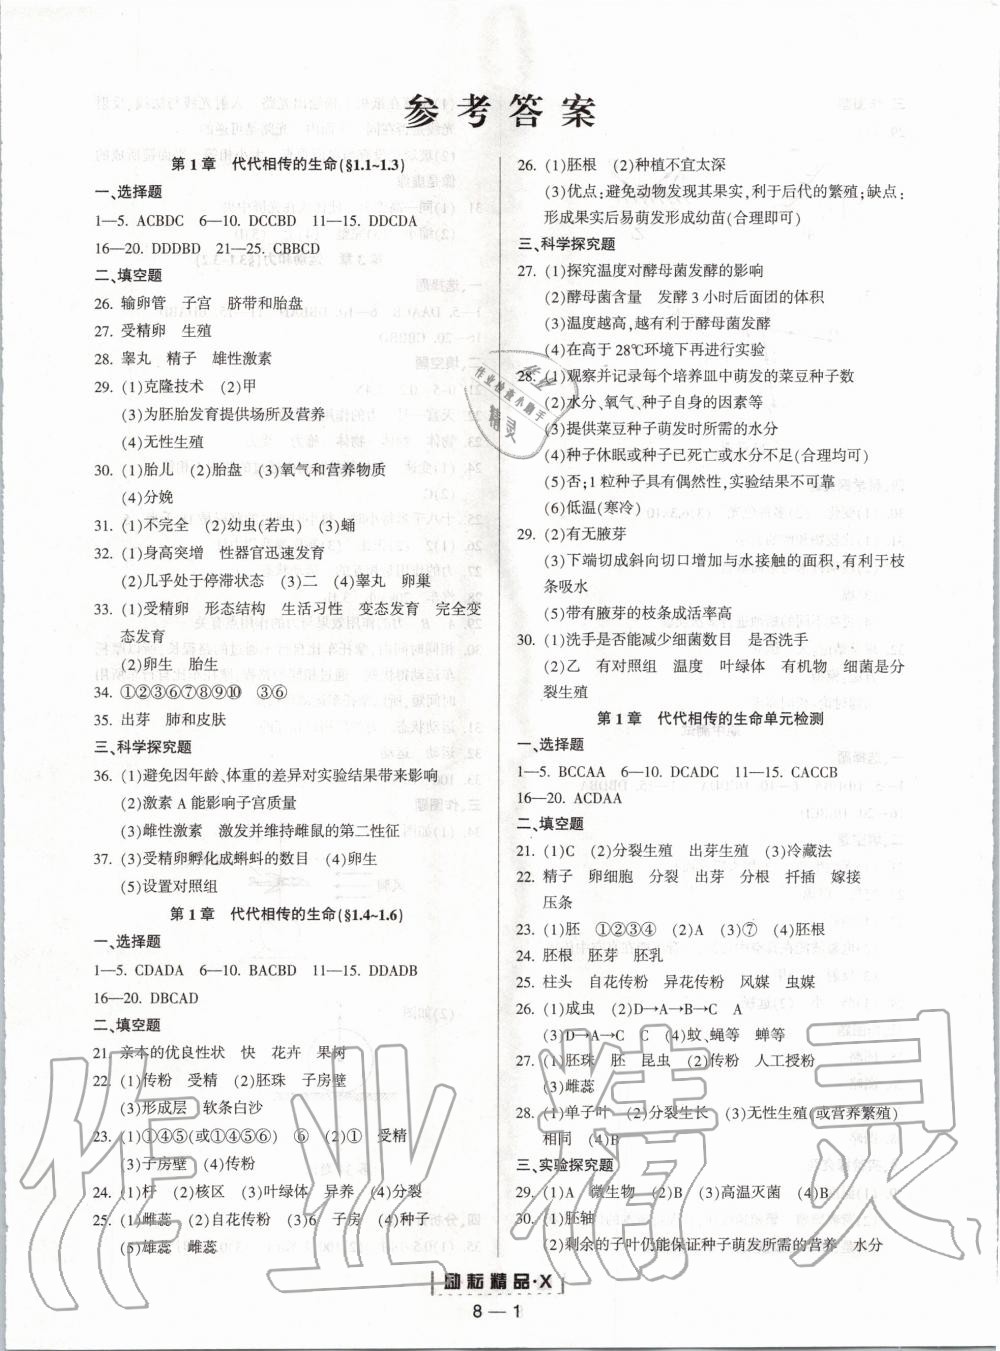 参考答案
第1章　代代相传的生命(§1.1~1.3)
一、选择题
1—5. ACBDC　6—10. DCCBD　11—15. DDCDA
16—20. DDDBD　21—25. CBBCD
二、填空题
26. 输卵管　子宫　脐带和胎盘
27. 受精卵　生殖
28. 睾丸　精子　雄性激素
29. (1)克隆技术　(2)甲
(3)为胚胎发育提供场所及营养
(4)无性生殖
30. (1)胎儿　(2)胎盘　(3)氧气和营养物质
(4)分娩
31. (1)不完全　(2)幼虫(若虫)　(3)蛹
32. (1)身高突增　性器官迅速发育
(2)几乎处于停滞状态　(3)二　(4)睾丸　卵巢
33. (1)受精卵　形态结构　生活习性　变态发育　完全变
态发育
(2)卵生　胎生
34. ①②③⑥⑦⑧⑨⑩　③⑥
35. 出芽　肺和皮肤
三、科学探究题
36. (1)避免因年龄、体重的差异对实验结果带来影响
(2)激素A能影响子宫质量
(3)雌性激素　激发并维持雌鼠的第二性征
37. (3)受精卵孵化成蝌蚪的数目　(4)卵生
(5)设置对照组
第1章　代代相传的生命(§1.4~1.6)
一、选择题
1—5. CDADA　6—10. BACBD　11—15. DDADB
16—20. DBCAD
二、填空题
21. 亲本的优良性状　快　花卉　果树
22. (1)传粉　受精　(2)胚珠　子房壁
(3)形成层　软条白沙
23. (1)①④⑤(或①④⑤⑥)　⑥　(2)①　受精
(3)子房壁　(4)传粉
24. (1)杆　(2)核区　(3)叶绿体　异养　(4)分裂
25. (1)雌蕊　(2)自花传粉　(3)6　子房　(4)种子
(5)雄蕊　雌蕊
26. (1)胚根　(2)种植不宜太深
(3)优点:避免动物发现其果实,利于后代的繁殖;缺点:
形成果实后易萌发形成幼苗(合理即可)
三、科学探究题
27. (1)探究温度对酵母菌发酵的影响
(2)酵母菌含量　发酵3小时后面团的体积
(3)温度越高,越有利于酵母菌发酵
(4)在高于28℃环境下再进行实验
28. (1)观察并记录每个培养皿中萌发的菜豆种子数
(2)水分、氧气、种子自身的因素等
(3)提供菜豆种子萌发时所需的水分
(4)种子休眠或种子已死亡或水分不足(合理均可)
(5)否;1粒种子具有偶然性,实验结果不可靠
(6)低温(寒冷)
29. (2)有无腋芽
(3)下端切成斜向切口增加与水接触的面积,有利于枝
条吸水
(5)带有腋芽的枝条成活率高
30. (1)洗手是否能减少细菌数目　是否洗手
(2)乙　有对照组　温度　叶绿体　有机物　细菌是分
裂生殖
第1章　代代相传的生命单元检测
一、选择题
1—5. BCCAA　6—10. DCADC　11—15. CACCB
16—20. ACDAA
二、填空题
21. (1)C　(2)分裂生殖　出芽生殖　(3)冷藏法
22. 精子　卵细胞　分裂　出芽　分根　扦插　嫁接
压条
23. (1)胚　①②③④　(2)④　(3)⑦　(4)胚根
24. 胚根　胚芽　胚乳
25. 柱头　自花传粉　异花传粉　风媒　虫媒
26. (1)成虫　(2)D→A→B→C　A
(3)D→A→C　C　(4)蚊、蝇等　蝉等
27. (1)胚珠　胚　昆虫　(2)传粉　人工授粉
(3)雌蕊
28. (1)单子叶　(2)分裂生长　(3)无性生殖(或营养繁殖)
相同　(4)B
三、实验探究题
29. (1)A　微生物　(2)B　(3)高温灭菌　(4)B
30. (1)胚轴
(2)剩余的子叶仍能保证种子萌发所需的营养　水分
励耘精品·X
8—1
作业精灵
作业检查小助手
精灵